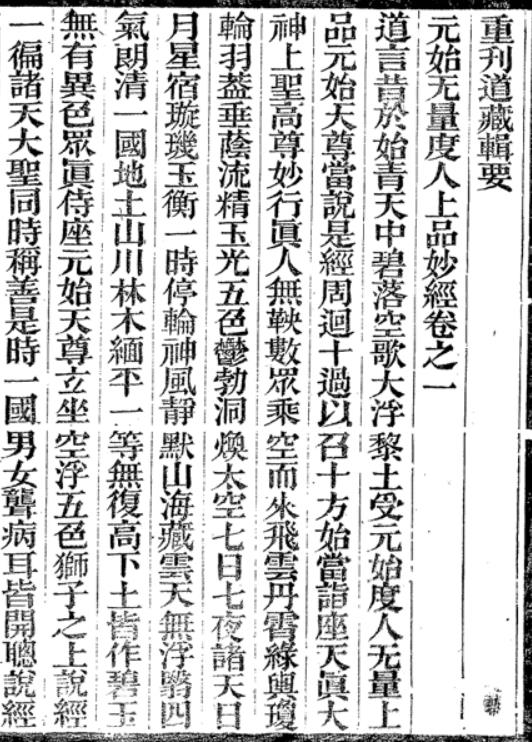 重刊道藏輯要
元始无量度人上品妙經卷之一
道言昔於始青天中碧落空歌大浮黎土受元始度人无量上
品元始天尊當說是經周迴十過以召十方始當詣座天眞大
神上聖高尊妙行眞人無鞅數眾乘空而來飛雲丹霄綠輿瓊
輪羽葢垂蔭流精玉光五色鬱勃洞煥太空七日七夜諸天日
月星宿璇璣玉衡一時停輪神風靜默山海藏雲天無浮翳四
氣朗清一國地土山川林木緬平一等無復高下土皆作碧玉
無有異色眾眞侍座元始天尊立坐空浮五色獅子之上說經
一徧諸天大聖同時稱善是時一國男女聾病耳皆開聰說經